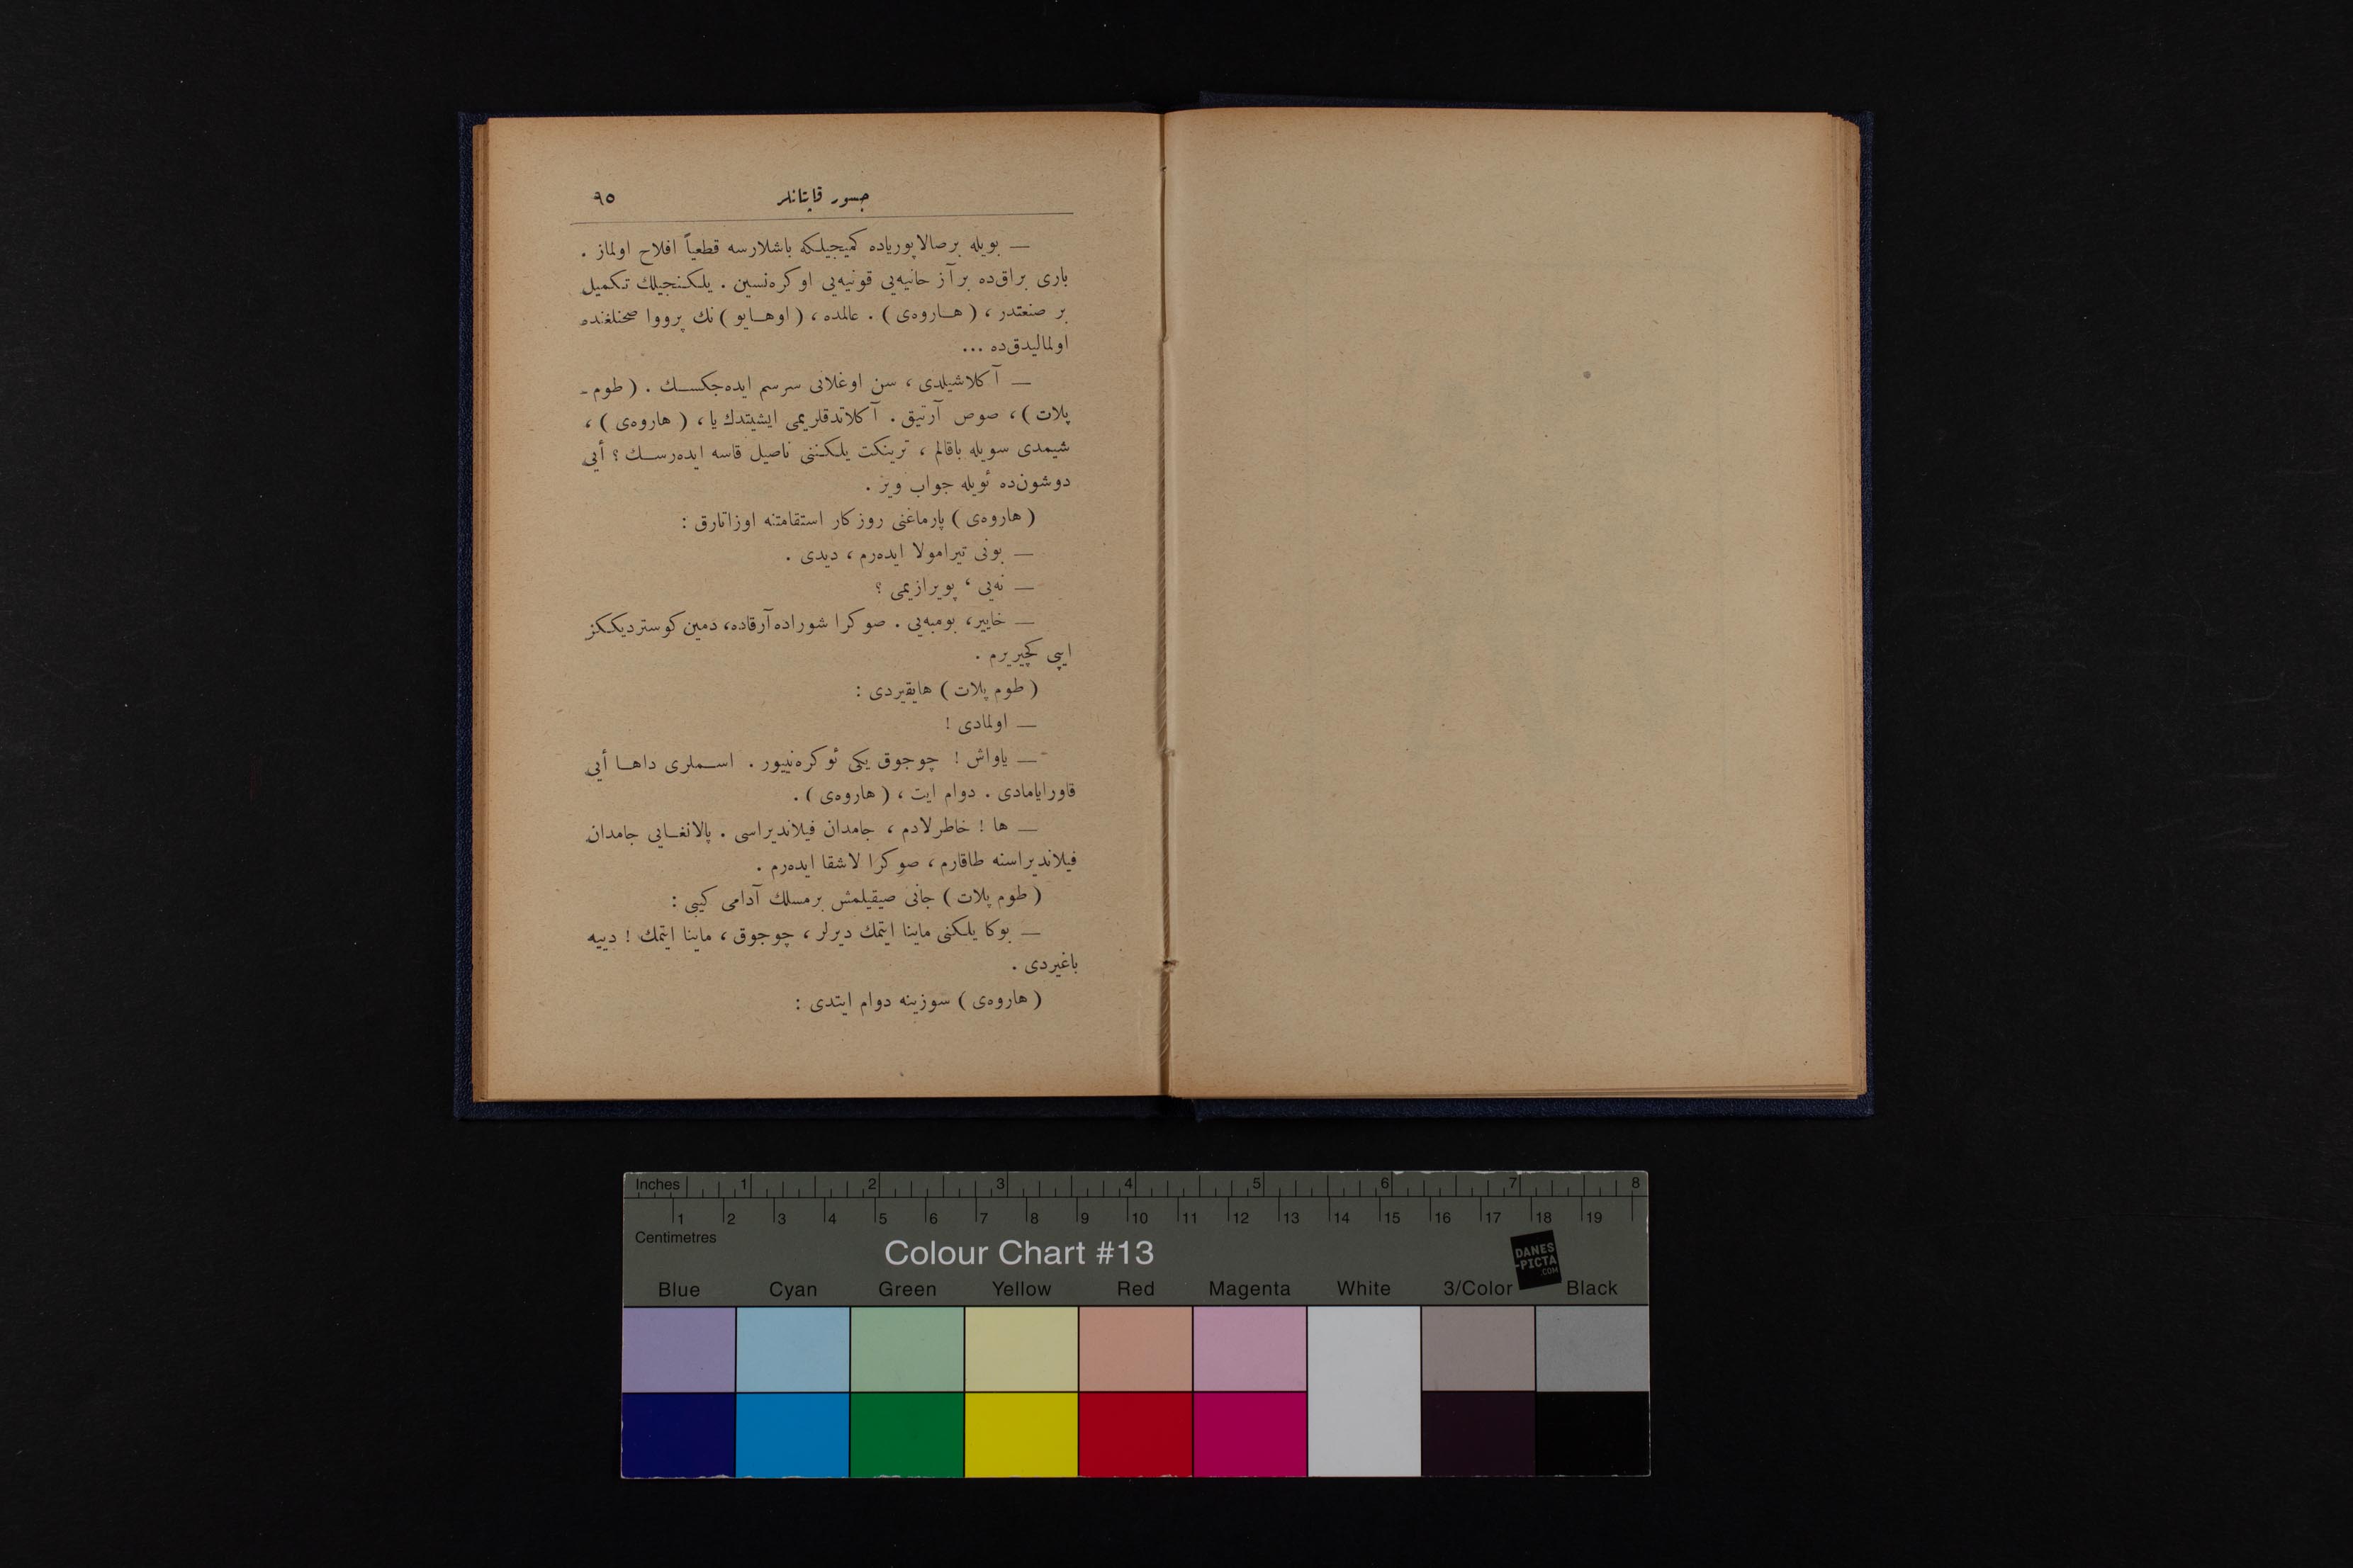 جسور قاپتانلر ٩٥
— بويله برصالاپورياده كميجيلكه باشلارسه قطعياً افلاح اولماز .
بارى براق‌ده بر آز حانيه‌يى قونيه‌يى اوكره‌نسين . يلكنجيلك تكميل
بر صنعتدر ، ( هاروه‌ى ) . عالمده ، ( اوهايو ) نك پرووا صحنلغنده
اولماليدق‌ده ...
— آكلاشيلدى ، سن اوغلانى سرسم ايده‌جكسك . ( طوم -
پلات ) ، صوص آرتيق . آكلاتدقلريمى ايشيتدك يا ، ( هاروه‌ى ) ،
شيمدى سويله باقالم ، ترينكت يلكننى ناصيل قاسه ايده‌رسك ؟ أيى
دوشون‌ده ئويله جواب وير .
( هاروه‌ى ) پارماغنى روزكار استقامتنه اوزاتارق :
— بونى تيرامولا ايده‌رم ، ديدى .
— نه‌يى ، پويرازيمى ؟
— خايير، بومبه‌يى . صوكرا شوراده آرقاده، دمين كوسترديككز
ايپى كچيريرم .
( طوم پلات ) هايقيردى :
— اولمادى !
— ياواش ! چوجوق يكى ئوكره‌نييور . اسملرى داها أيى
قاورايامادى . دوام ايت ، ( هاروه‌ى ) .
— ها ! خاطرلادم ، جامدان فيلانديراسى . پالانغايى جامدان
فيلانديراسنه طاقارم ، صوكرا لاشقا ايده‌رم .
( طوم پلات ) جانى صيقيلمش برمسلك آدامى كيبى :
— بوكا يلكنى ماينا ايتمك ديرلر ، چوجوق ، ماينا ايتمك ! دييه
باغيردى .
( هاروه‌ى ) سوزينه دوام ايتدى :
Inches 1 2 3 4 5 6 7 8
1 2 3 4 5 6 7 8 9 10 11 12 13 14 15 16 17 18 19
Centimetres
Colour Chart #13
DANES
-PICTA
.COM
Blue Cyan Green Yellow Red Magenta White 3/Color Black